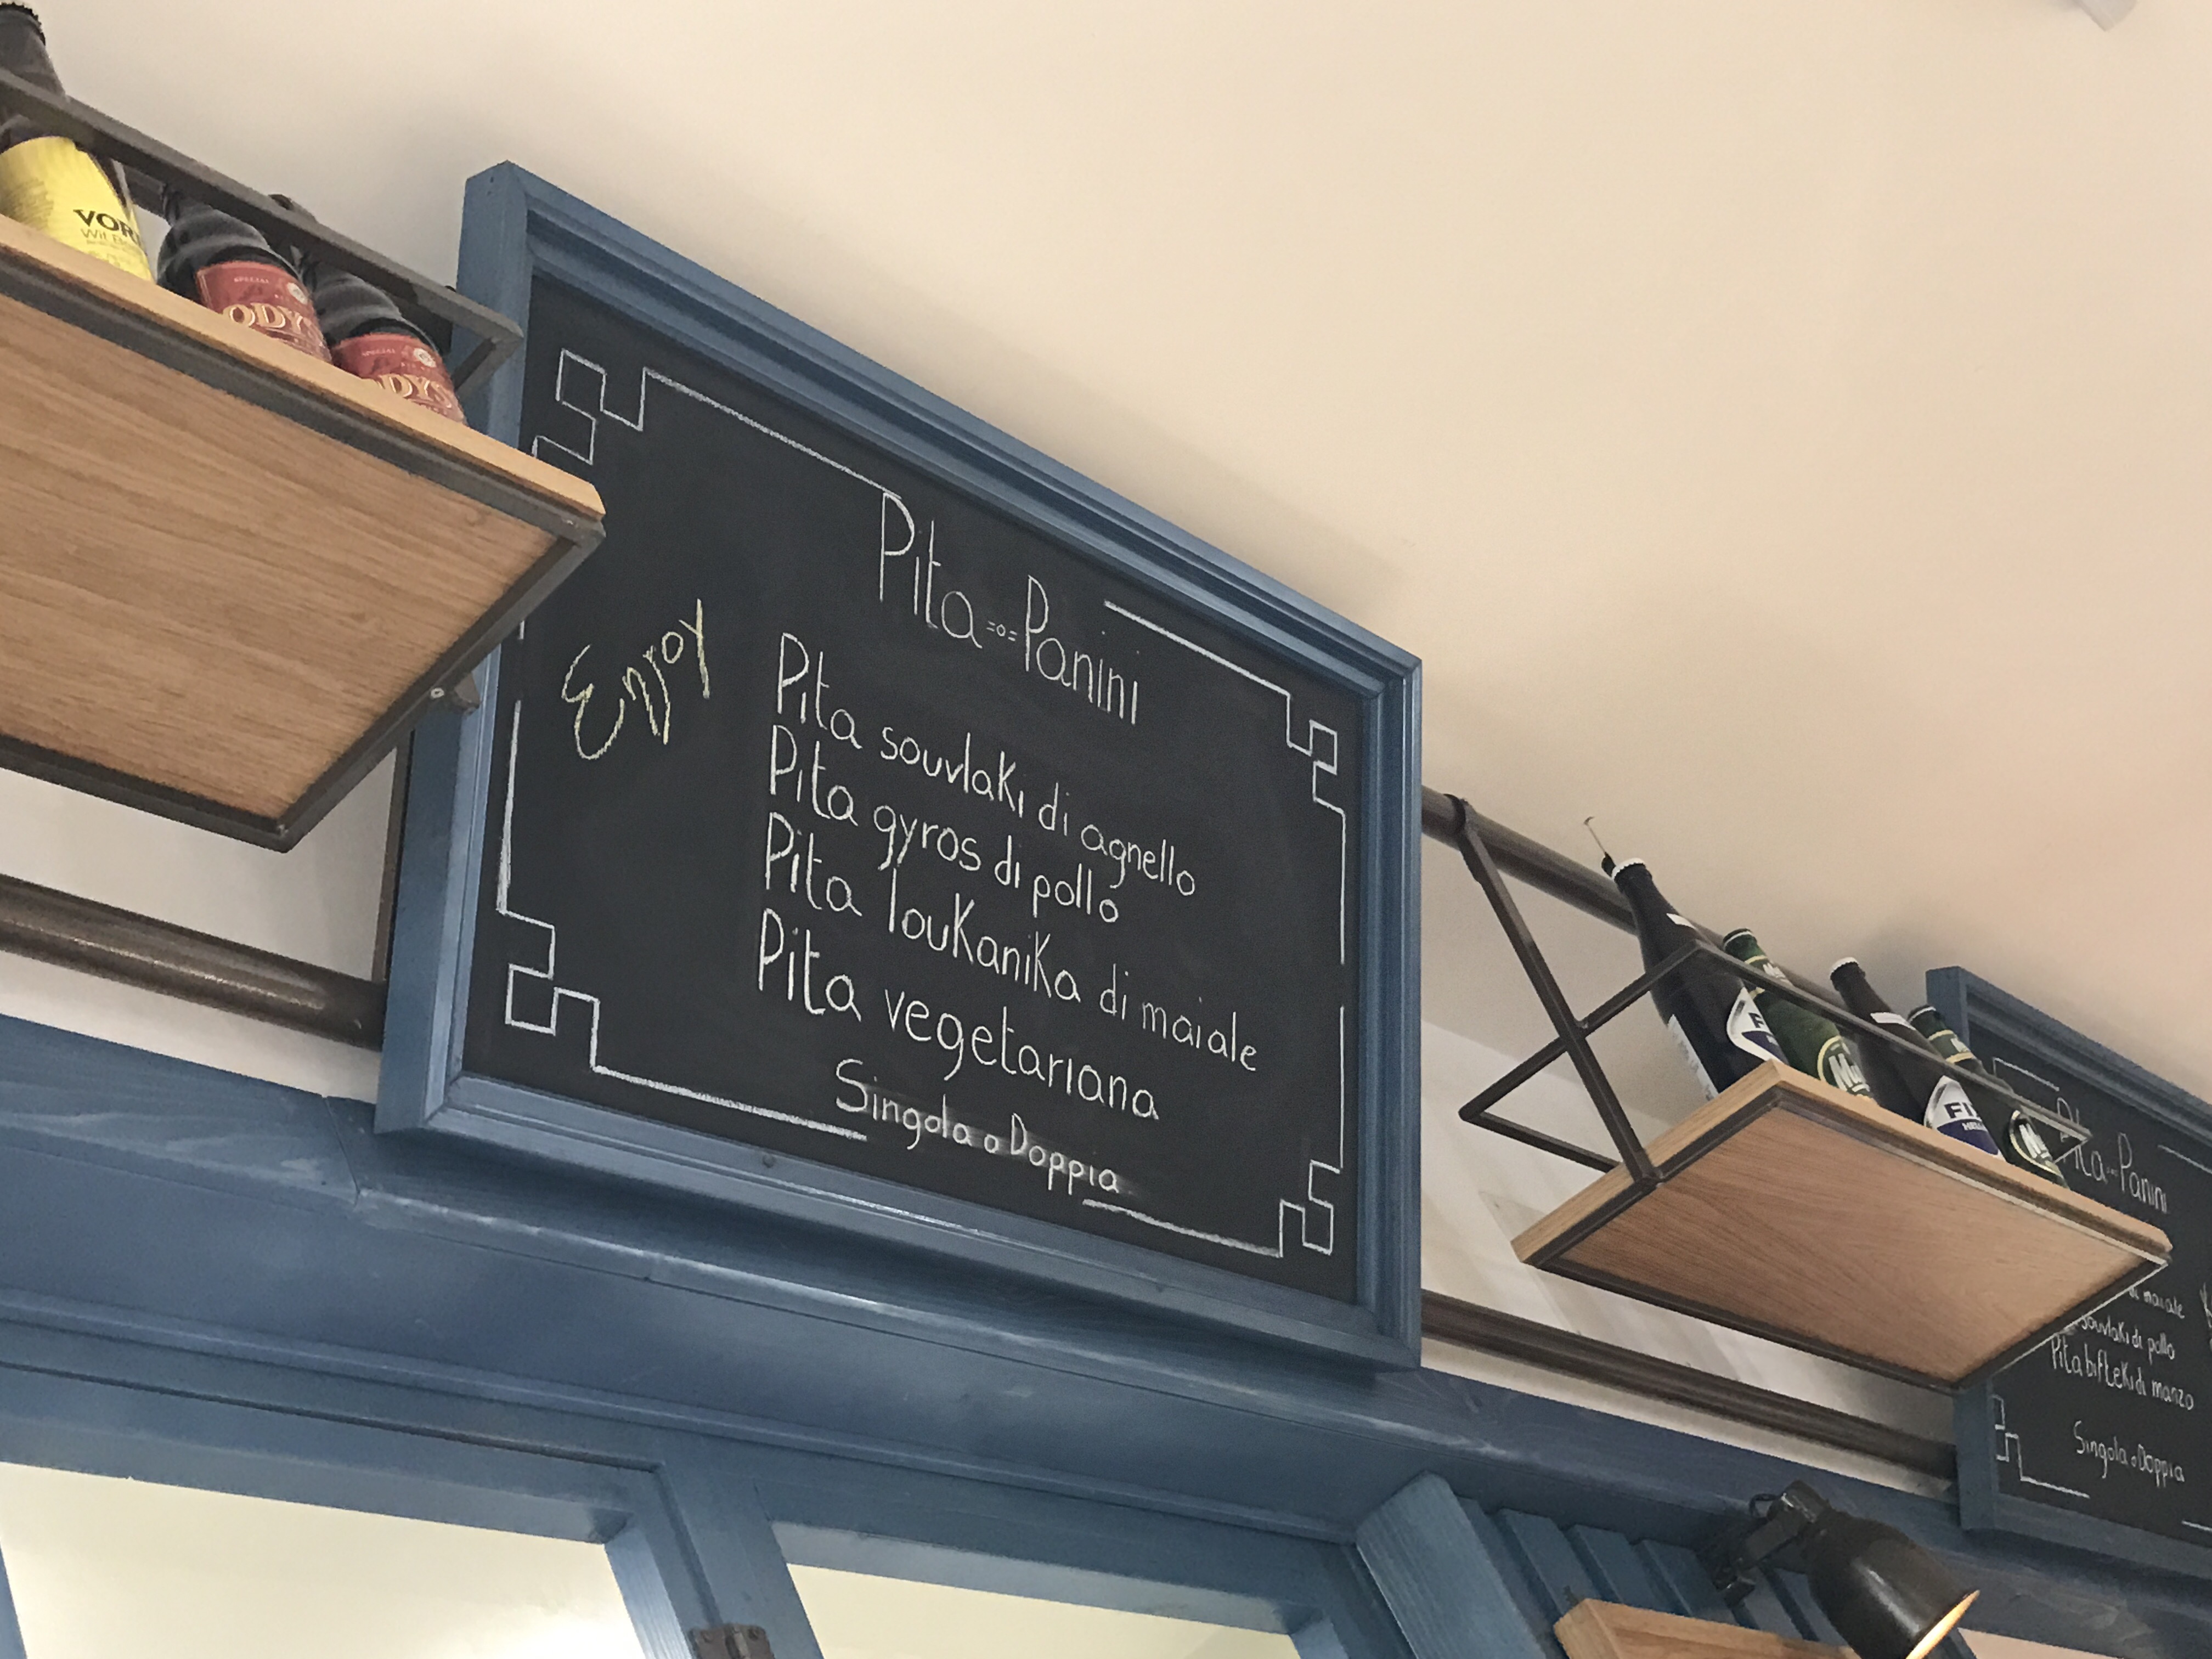 VOR
SPECIAL
ODYS
SPECIAL
ODYS
Pita =o= Panini
Enjoy
Pita souvlaki di agnello
Pita gyros di pollo
Pita loukanika di maiale
Pita vegetariana
Singola o Doppia
FI
HEL
Pita Panini
di maiale
souvlaki di pollo
Pita bifteki di manzo
Singola o Doppia